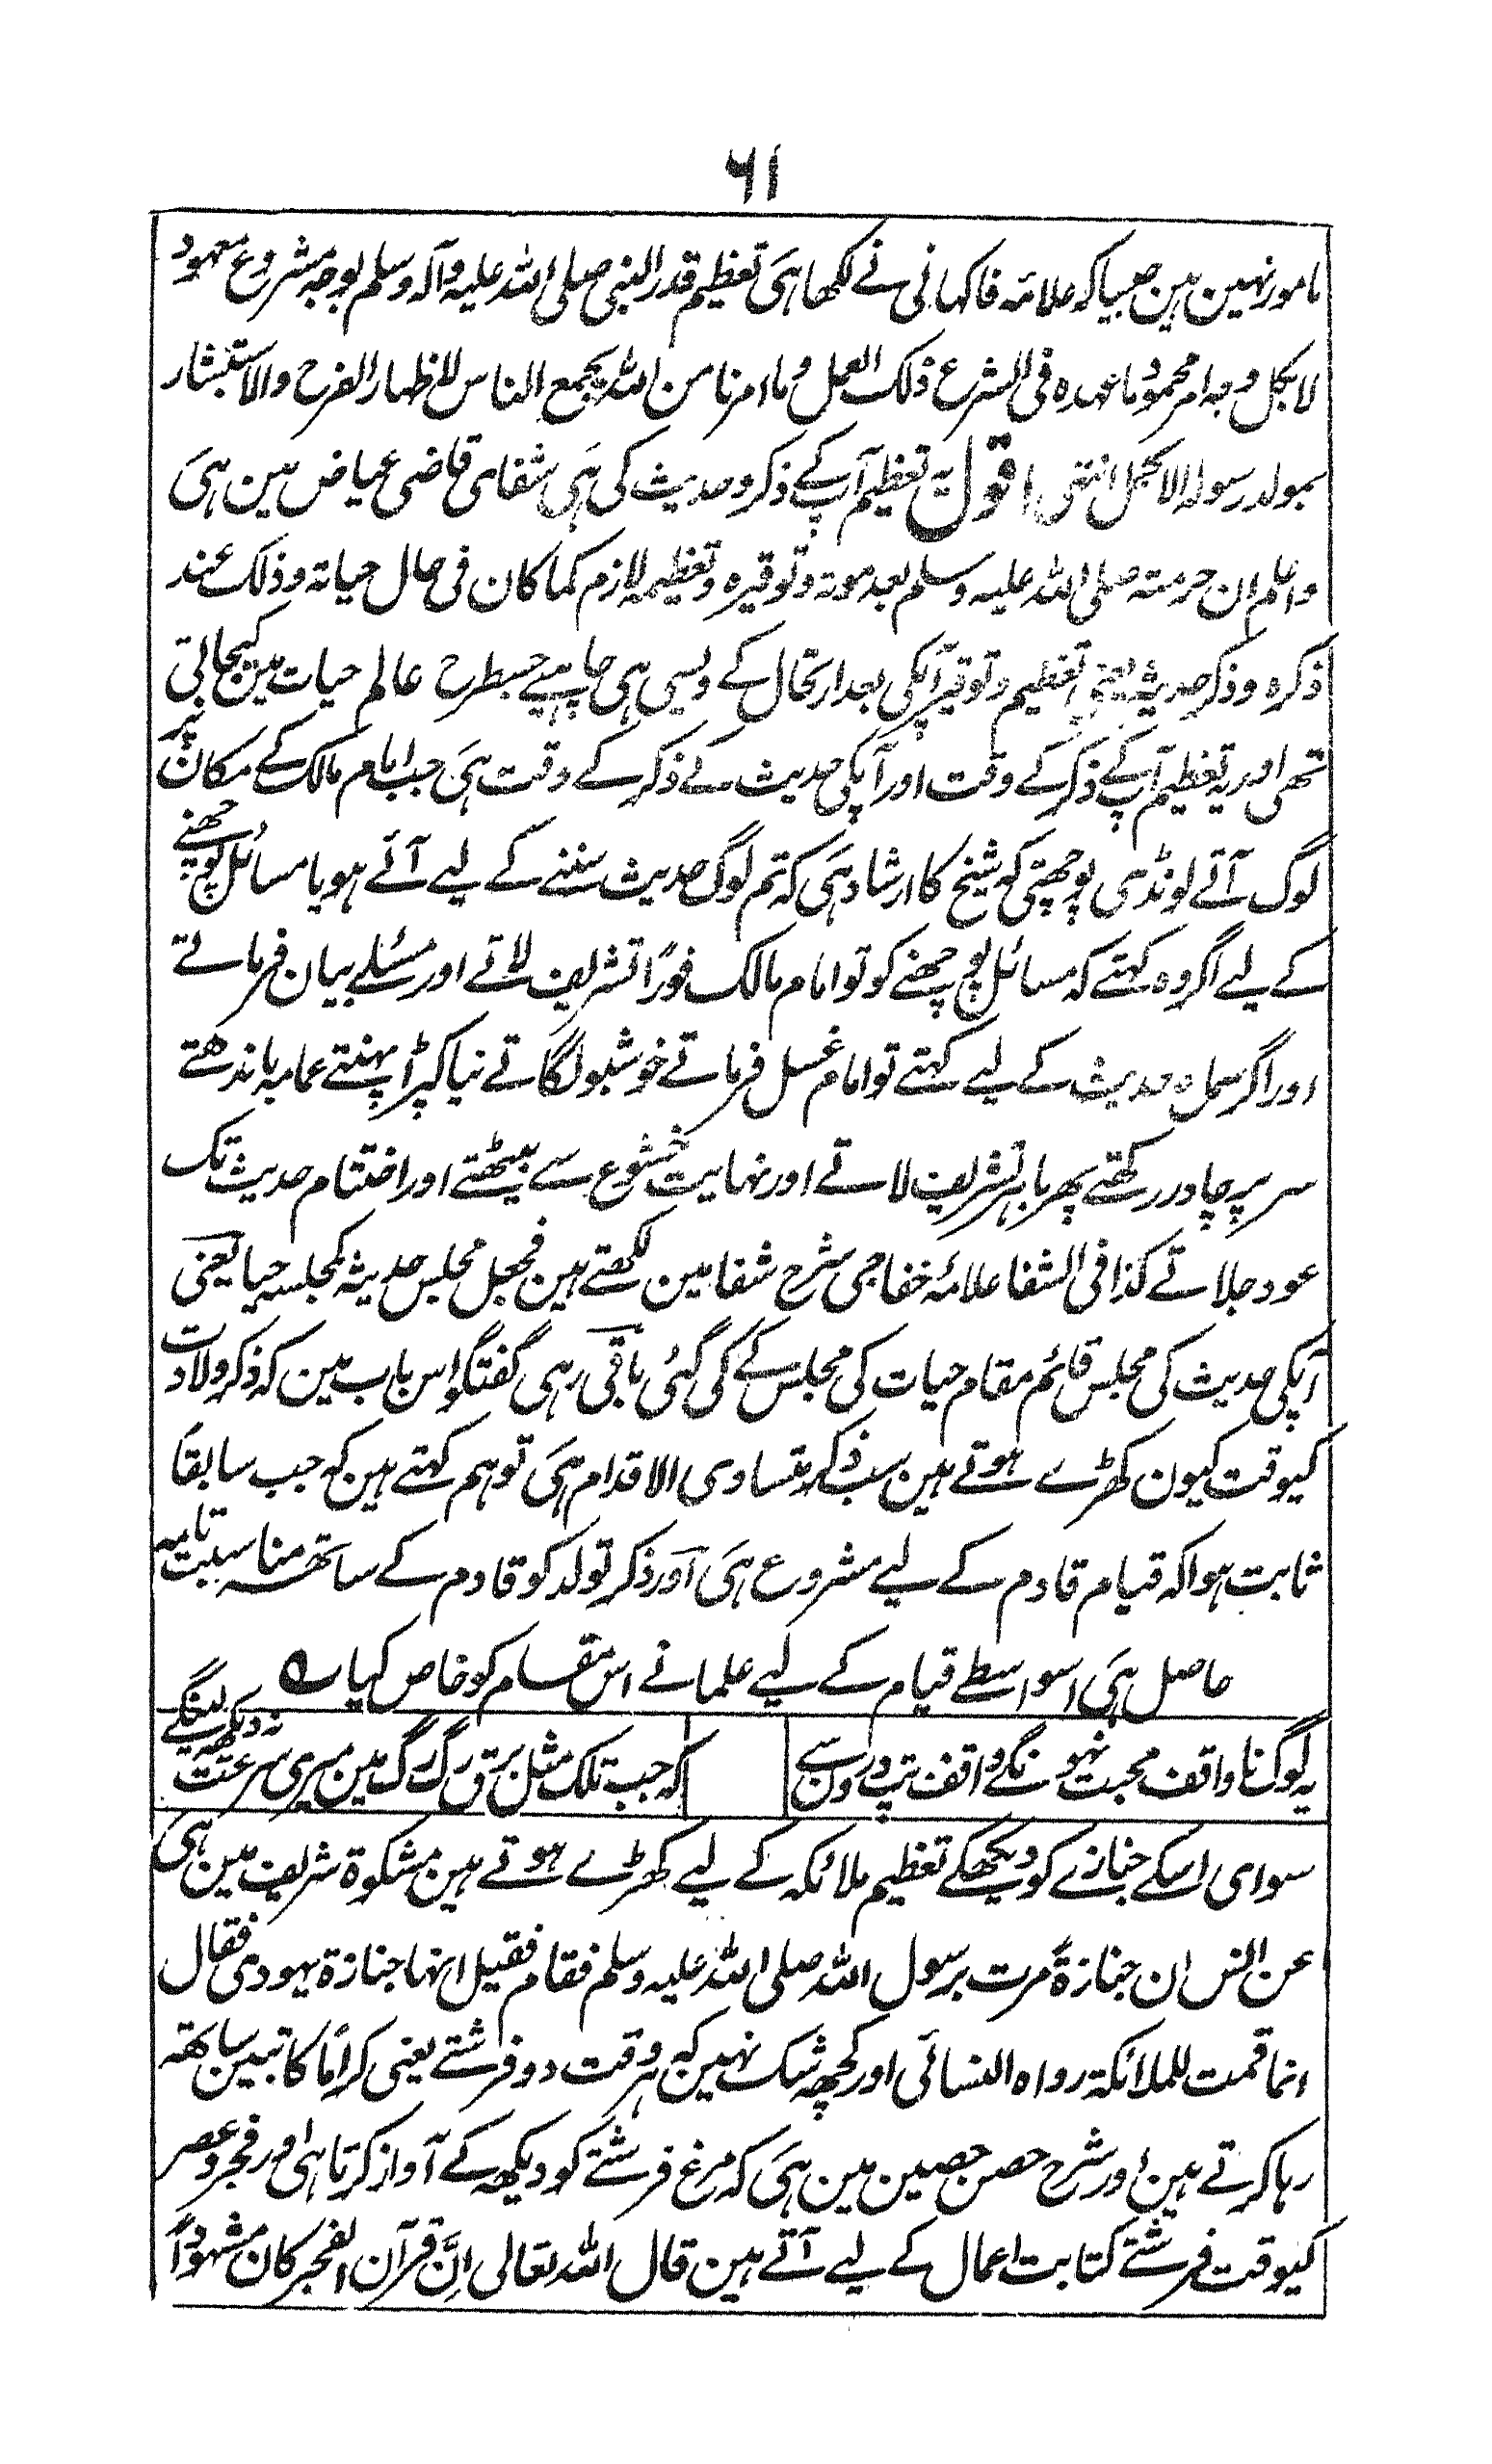 ۶۱
مامور نہین ہین جیسا کہ علامۂ فاکہانی نے لکھا ہی تعظیم قدر النبی صلی اللہ علیہ وآلہ وسلم بوجہ مشروع معہود
لا بکل وجہ امر محمود ما عہدہ فی الشرع ذلک العمل وما امرنا من اللہ بجمع الناس لاظہار الفرح والاستبشار
بمولد رسولہ الاکمل انتہی اقول یہ تعظیم آپ کے ذکر و حدیث کی ہی شفای قاضی عیاض مین ہی
واعلم ان حرمتہ صلی اللہ علیہ وسلم بعد موتہ وتوقیرہ وتعظیمہ لازم کما کان فی حال حیاتہ وذلک عند
ذکرہ وذکر حدیثہ یعنی تعظیم و توقیر آپکی بعد ارتحال کے ویسی ہی چاہیے جسطرح عالم حیات مین کیجاتی
تھی اور یہ تعظیم آپ کے ذکر کے وقت اور آپکی حدیث کے ذکر کے وقت ہی جب امام مالک کے مکان پر
لوگ آتے لونڈی پوچھتی کہ شیخ کا ارشاد ہی کہ تم لوگ حدیث سننے کے لیے آئے ہو یا مسائل پوچھنے
کے لیے اگر وہ کہتے کہ مسائل پوچھنے کو تو امام مالک فوراً تشریف لاتے اور مسئلے بیان فرماتے
اور اگر سماع حدیث کے لیے کہتے تو امام غسل فرماتے خوشبو لگاتے نیا کپڑا پہنتے عمامہ باندھتے
سر پر چادر رکھتے پھر باہر تشریف لاتے اور نہایت خشوع سے بیٹھتے اور اختتام حدیث تک
عود جلاتے کذا فی الشفا علامۂ خفاجی شرح شفا مین لکھتے ہین فجعل مجلس حدیثہ کمجلسہ حیا یعنی
آپکی حدیث کی مجلس قائم مقام حیات کی مجلس کے کی گئی باقی رہی گفتگو اس باب مین کہ ذکر ولادت
کیوقت کیون کھڑے ہوتے ہین سب ذکر متساوی الاقدام ہی تو ہم کہتے ہین کہ جب سابقاً
ثابت ہوا کہ قیام قادم کے لیے مشروع ہی اور ذکر تولد کو قادم کے ساتھ مناسبت تامہ
حاصل ہی اسواسطے قیام کے لیے علما نے اس مقام کو خاص کیا ہ
یہ لوگ ناواقف محبت نہونگے واقف تپ درون سے کہ جب تلک مثل برق رگ رگ مین میری سرعت نہ دیکھ لینگے
سوای اسکے جنازے کو دیکھکے تعظیم ملائکہ کے لیے کھڑے ہوتے ہین مشکوۃ شریف مین ہی
عن انس ان جنازۃ مرت برسول اللہ صلی اللہ علیہ وسلم فقام فقیل انہا جنازۃ یہودی فقال
انما قمت للملائکۃ رواہ النسائی اور کچھ شک نہین کہ ہر وقت دو فرشتے یعنی کراماً کاتبین ساتھ
رہا کرتے ہین اور شرح حصن حصین مین ہی کہ مرغ فرشتے کو دیکھ کے آواز کرتا ہی اور فجر و عصر
کیوقت فرشتے کتابت اعمال کے لیے آتے ہین قال اللہ تعالی اِنَّ قرآن الفجر کان مشہوداً